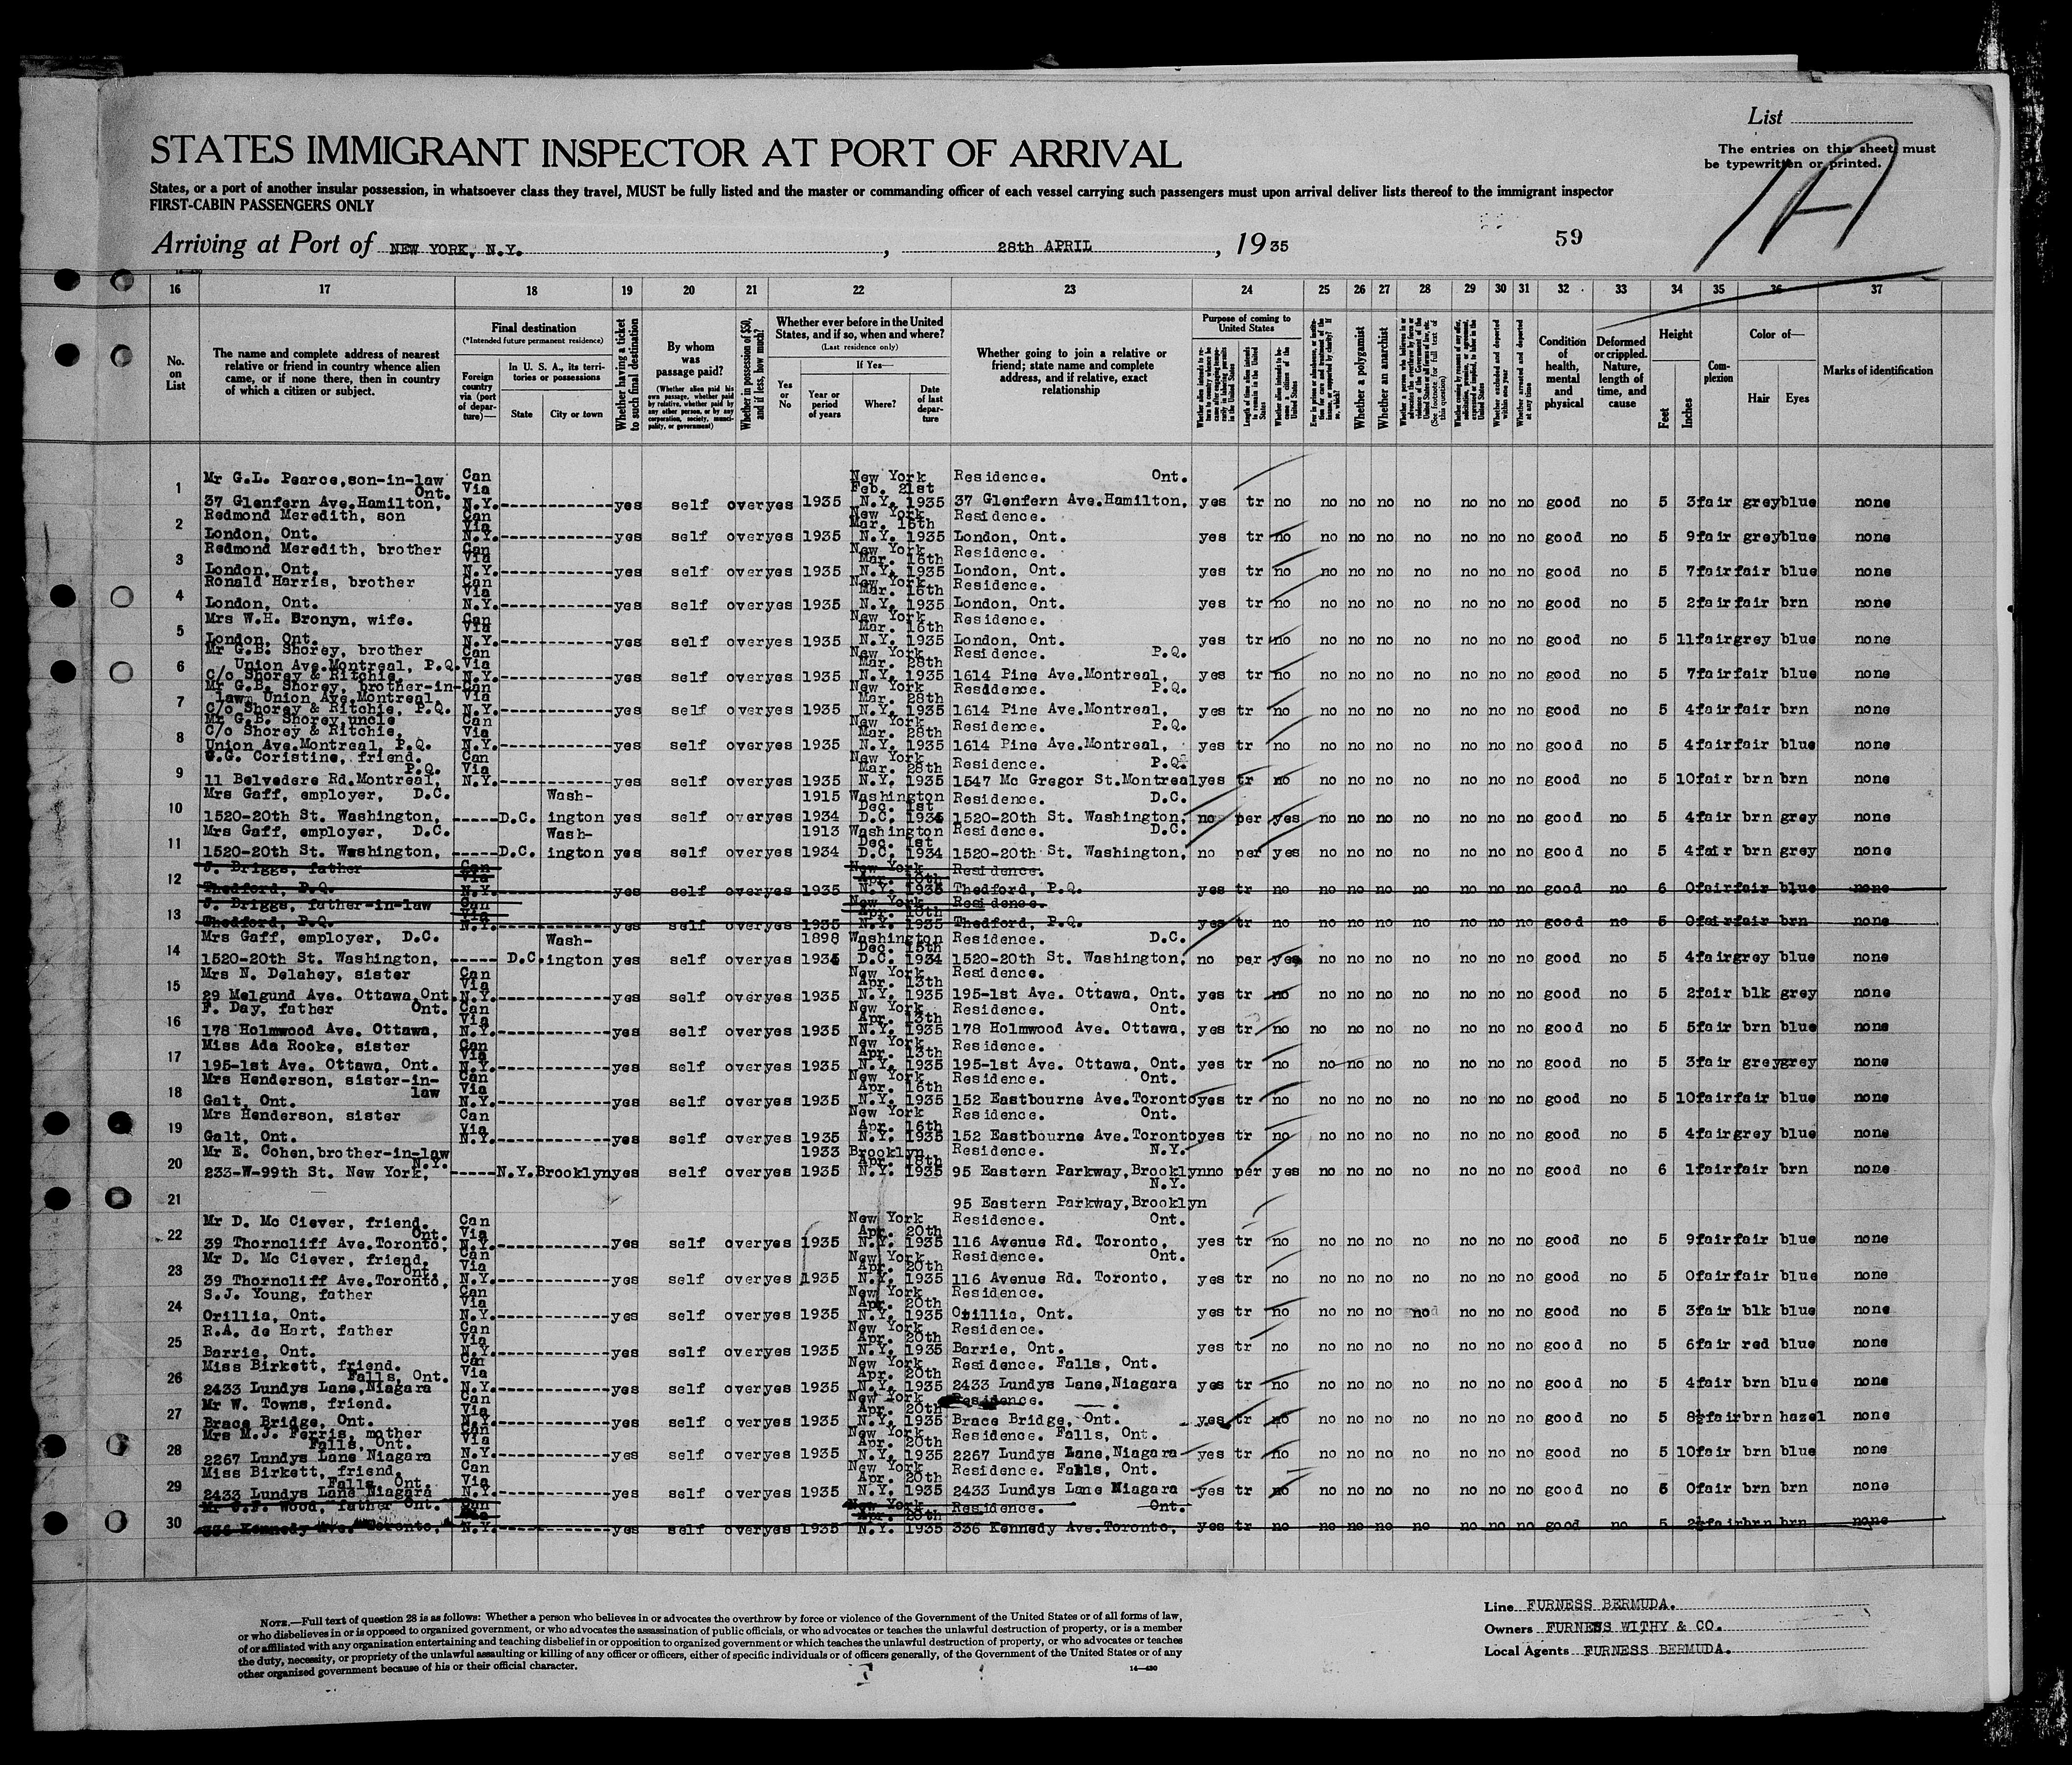 List
STATES IMMIGRANT INSPECTOR AT PORT OF ARRIVAL
The entries on this sheet must
be typewritten or printed.
States, or a port of another insular possession, in whatsoever class they travel, MUST be fully listed and the master or commanding officer of each vessel carrying such passengers must upon arrival deliver lists thereof to the immigrant inspector
FIRST-CABIN PASSENGERS ONLY
Arriving at Port of NEW YORK, N.Y. , 28th APRIL , 1935
59
16 17 18 19 20 21 22 23 24 25 26 27 28 29 30 31 32 33 34 35 36 37
No. on List
The name and complete address of nearest relative or friend in country whence alien came, or if none there, then in country of which a citizen or subject.
Final destination
(*Intended future permanent residence)
Foreign country via (port of departure)—
In U. S. A., its territories or possessions
State
City or town
Whether having a ticket to such final destination
By whom was passage paid?
(Whether alien paid his own passage, whether paid by relative, whether paid by any other person, or by any corporation, society, municipality, or government)
Whether in possession of $50, and if less, how much?
Whether ever before in the United States, and if so, when and where?
(Last residence only)
Yes or No
If Yes—
Year or period of years
Where?
Date of last departure
Whether going to join a relative or friend; state name and complete address, and if relative, exact relationship
Purpose of coming to United States
Length of time alien intends to remain in the United States
Whether alien intends to become a citizen of the United States
Whether a polygamist
Whether an anarchist
(See footnote for full text of this question)
Whether excluded and deported within one year
Whether arrested and deported at any time
Condition of health, mental and physical
Deformed or crippled. Nature, length of time, and cause
Height
Feet
Inches
Complexion
Color of—
Hair
Eyes
Marks of identification
1 Mr G.L. Pearce,son-in-law Ont. 37 Glenfern Ave.Hamilton, Can Via N.Y. yes self over yes 1935 New York Feb. 21st N.Y. 1935 Residence. Ont. 37 Glenfern Ave.Hamilton, yes tr no no no no no no no no good no 5 3 fair grey blue none
2 Redmond Meredith, son London, Ont. Can Via N.Y. yes self over yes 1935 New York Mar. 16th N.Y. 1935 Residence. London, Ont. yes tr no no no no no no no no good no 5 9 fair grey blue none
3 Redmond Meredith, brother London, Ont. Can Via N.Y. yes self over yes 1935 New York Mar. 16th N.Y. 1935 Residence. London, Ont. yes tr no no no no no no no no good no 5 7 fair fair blue none
4 Ronald Harris, brother London, Ont. Can Via N.Y. yes self over yes 1935 New York Mar. 16th N.Y. 1935 Residence. London, Ont. yes tr no no no no no no no no good no 5 2 fair fair brn none
5 Mrs W.H. Bronyn, wife. London, Ont. Can Via N.Y. yes self over yes 1935 New York Mar. 16th N.Y. 1935 Residence. London, Ont. yes tr no no no no no no no no good no 5 11 fair grey blue none
6 Mr G.B. Shorey, brother Union Ave.Montreal, P.Q. c/o Shorey & Ritchie, Can Via N.Y. yes self over yes 1935 New York Mar. 28th N.Y. 1935 Residence. P.Q. 1614 Pine Ave.Montreal, yes tr no no no no no no no no good no 5 7 fair fair blue none
7 Mr G.B. Shorey, brother-in-law Union Ave.Montreal, C/o Shorey & Ritchie, P.Q. Can Via N.Y. yes self over yes 1935 New York Mar. 28th N.Y. 1935 Residence. P.Q. 1614 Pine Ave.Montreal, yes tr no no no no no no no no good no 5 4 fair fair brn none
8 Mr G.B. Shorey,uncle C/o Shorey & Ritchie, Union Ave.Montreal, P.Q. Can Via N.Y. yes self over yes 1935 New York Mar. 28th N.Y. 1935 Residence. P.Q. 1614 Pine Ave.Montreal, yes tr no no no no no no no no good no 5 4 fair fair blue none
9 Coristine, friend. P.Q. 11 Belvedere Rd.Montreal, Can Via N.Y. yes self over yes 1935 New York Mar. 28th N.Y. 1935 Residence. P.Q. 1547 Mc Gregor St.Montreal yes tr no no no no no no no no good no 5 10 fair brn brn none
10 Mrs Gaff, employer, D.C. 1520-20th St. Washington, D.C. Wash-ington yes self over yes 1915 1934 Washington Dec. 1st D.C. 1934 Residence. D.C. 1520-20th St. Washington, no per yes no no no no no no no good no 5 4 fair brn grey none
11 Mrs Gaff, employer, D.C. 1520-20th St. Washington, D.C. Wash-ington yes self over yes 1913 1934 Washington Dec. 1st D.C. 1934 Residence. D.C. 1520-20th St. Washington, no per yes no no no no no no no good no 5 4 fair brn grey none
12 J. Briggs, father Thedford, P.Q. Can Via N.Y. yes self over yes 1935 New York Apr. 10th N.Y. 1935 Residence. Thedford, P.Q. yes tr no no no no no no no no good no 6 0 fair fair blue none
13 J. Briggs, father-in-law Thedford, P.Q. Can Via N.Y. yes self over yes 1935 New York Apr. 10th N.Y. 1935 Residence. Thedford, P.Q. yes tr no no no no no no no no good no 5 0 fair fair brn none
14 Mrs Gaff, employer, D.C. 1520-20th St. Washington, D.C. Wash-ington yes self over yes 1898 1934 Washington Dec. 15th D.C. 1934 Residence. D.C. 1520-20th St. Washington, no per yes no no no no no no no good no 5 4 fair grey blue none
15 Mrs N. Delahey, sister 29 Melgund Ave. Ottawa,Ont. Can Via N.Y. yes self over yes 1935 New York Apr. 13th N.Y. 1935 Residence. 195-1st Ave. Ottawa, Ont. yes tr no no no no no no no no good no 5 2 fair blk grey none
16 F. Day, father Ont. 178 Holmwood Ave. Ottawa, Can Via N.Y. yes self over yes 1935 New York Apr. 13th N.Y. 1935 Residence. Ont. 178 Holmwood Ave. Ottawa, yes tr no no no no no no no no good no 5 5 fair brn blue none
17 Miss Ada Rooke, sister 195-1st Ave. Ottawa, Ont. Can Via N.Y. yes self over yes 1935 New York Apr. 13th N.Y. 1935 Residence. 195-1st Ave. Ottawa, Ont. yes tr no no no no no no no no good no 5 3 fair grey grey none
18 Mrs Henderson, sister-in-law Galt, Ont. Can Via N.Y. yes self over yes 1935 New York Apr. 16th N.Y. 1935 Residence. Ont. 152 Eastbourne Ave.Toronto yes tr no no no no no no no no good no 5 10 fair fair blue none
19 Mrs Henderson, sister Galt, Ont. Can Via N.Y. yes self over yes 1935 New York Apr. 16th N.Y. 1935 Residence. Ont. 152 Eastbourne Ave.Toronto yes tr no no no no no no no no good no 5 4 fair grey blue none
20 Mr E. Cohen,brother-in-law N.Y. 233-W-99th St. New York, N.Y. Brooklyn yes self over yes 1933 1935 Brooklyn Apr. 18th N.Y. 1935 Residence. N.Y. 95 Eastern Parkway,Brooklyn no per yes no no no no no no no good no 6 1 fair fair brn none
21 N.Y. 95 Eastern Parkway,Brooklyn
22 Mr D. Mc Ciever, friend. Ont. 39 Thorncliff Ave.Toronto, Can Via N.Y. yes self over yes 1935 New York Apr. 20th N.Y. 1935 Residence. Ont. 116 Avenue Rd. Toronto, yes tr no no no no no no no no good no 5 9 fair fair blue none
23 Mr D. Mc Ciever, friend, Ont. 39 Thorncliff Ave.Toronto, Can Via N.Y. yes self over yes 1935 New York Apr. 20th N.Y. 1935 Residence. Ont. 116 Avenue Rd. Toronto, yes tr no no no no no no no no good no 5 0 fair fair blue none
24 S.J. Young, father Orillia, Ont. Can Via N.Y. yes self over yes 1935 New York Apr. 20th N.Y. 1935 Residence. Orillia, Ont. yes tr no no no no no no no no good no 5 3 fair blk blue none
25 R.A. de Hart, father Barrie, Ont. Can Via N.Y. yes self over yes 1935 New York Apr. 20th N.Y. 1935 Residence. Barrie, Ont. yes tr no no no no no no no no good no 5 6 fair red blue none
26 Miss Birkett, friend. Falls, Ont. 2433 Lundys Lane,Niagara Can Via N.Y. yes self over yes 1935 New York Apr. 20th N.Y. 1935 Residence. Falls, Ont. 2433 Lundys Lane,Niagara yes tr no no no no no no no no good no 5 4 fair brn blue none
27 Mr W. Towns, friend. Brace Bridge, Ont. Can Via N.Y. yes self over yes 1935 New York Apr. 20th N.Y. 1935 Residence. Brace Bridge, Ont. yes tr no no no no no no no no good no 5 8½ fair brn hazel none
28 Mrs M.J. Ferris, mother Falls, Ont. 2267 Lundys Lane Niagara Can Via N.Y. yes self over yes 1935 New York Apr. 20th N.Y. 1935 Residence. Falls, Ont. 2267 Lundys Lane,Niagara yes tr no no no no no no no no good no 5 10 fair brn blue none
29 Miss Birkett, friend, Falls, Ont. 2433 Lundys Lane Niagara Can Via N.Y. yes self over yes 1935 New York Apr. 20th N.Y. 1935 Residence. Falls, Ont. 2433 Lundys Lane Niagara yes tr no no no no no no no no good no 5 0 fair brn brn none
30 Wood, father Ont. 336 Kennedy Ave. Toronto, Can Via N.Y. yes self over yes 1935 New York Apr. 20th N.Y. 1935 Residence. Ont. 336 Kennedy Ave.Toronto, yes tr no no no no no no no no good no 5 2½ fair brn brn none
NOTE.—Full text of question 28 is as follows: Whether a person who believes in or advocates the overthrow by force or violence of the Government of the United States or of all forms of law,
or who disbelieves in or is opposed to organized government, or who advocates the assassination of public officials, or who advocates or teaches the unlawful destruction of property, or is a member
of or affiliated with any organization entertaining and teaching disbelief in or opposition to organized government or which teaches the unlawful destruction of property, or who advocates or teaches
the duty, necessity, or propriety of the unlawful assaulting or killing of any officer or officers, either of specific individuals or of officers generally, of the Government of the United States or of any
other organized government because of his or their official character.
14—430
Line FURNESS BERMUDA.
Owners FURNESS WITHY & CO.
Local Agents FURNESS BERMUDA.